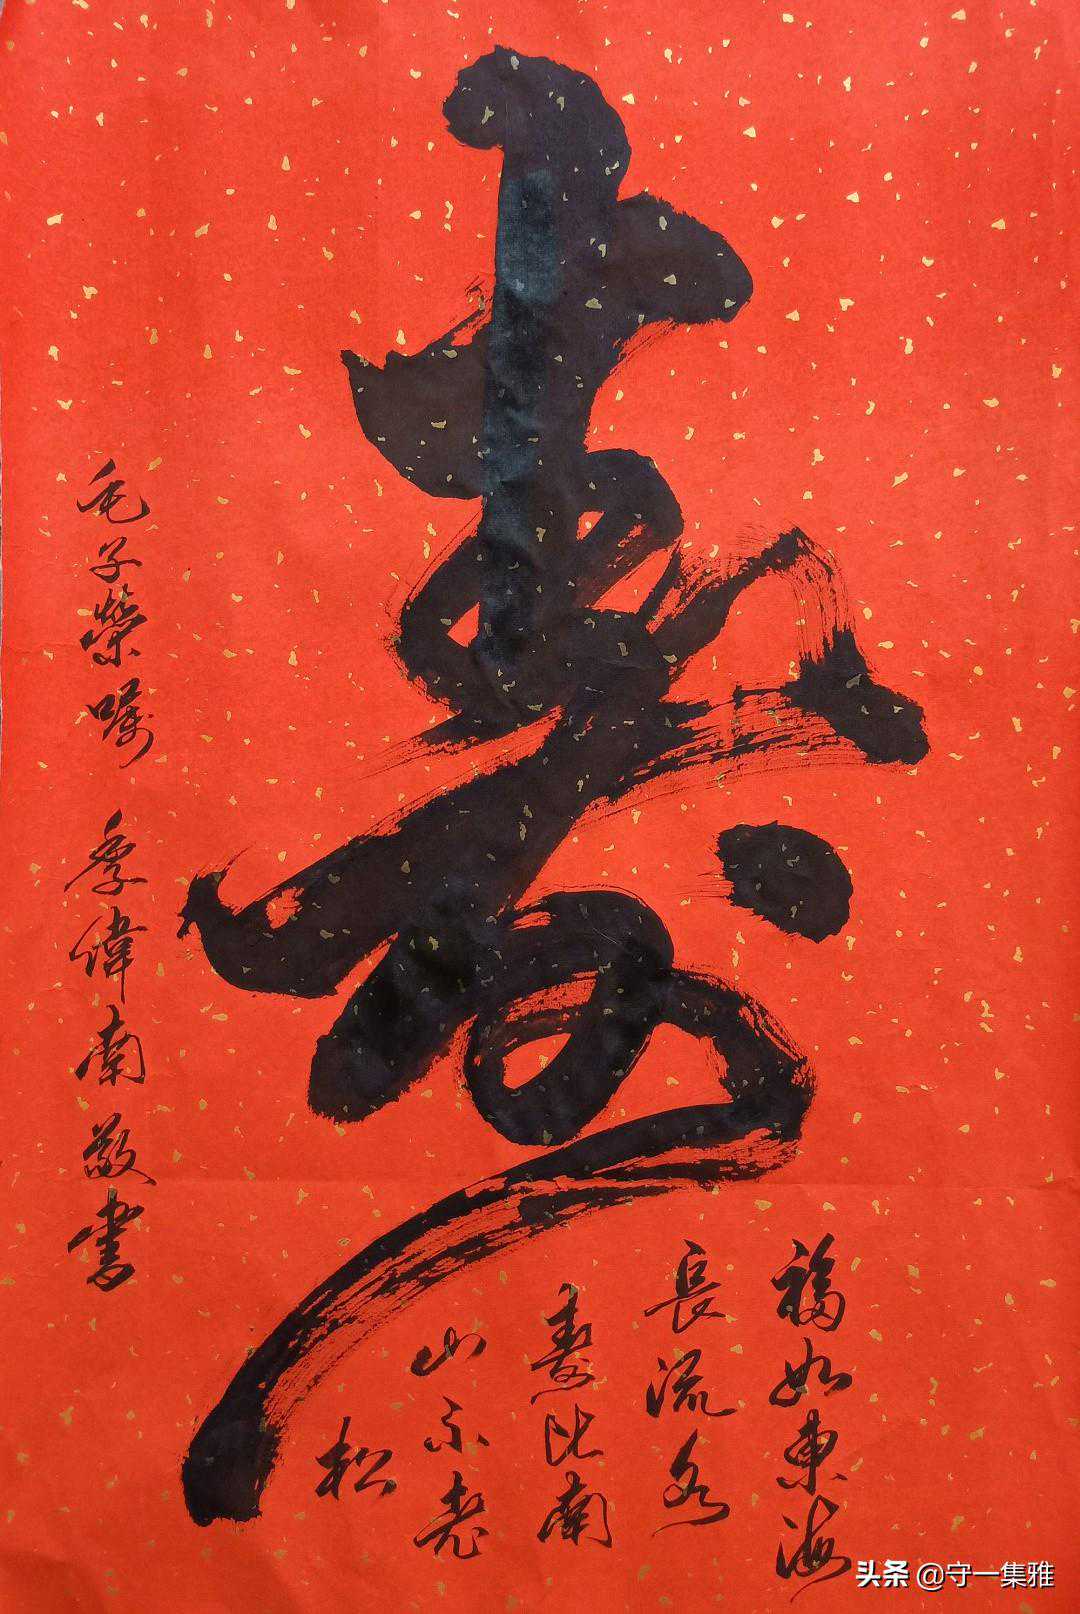 壽
福如東海
長流水
壽比南
山不老
松
毛子榮嘱 季偉南敬書
头条 @守一集雅